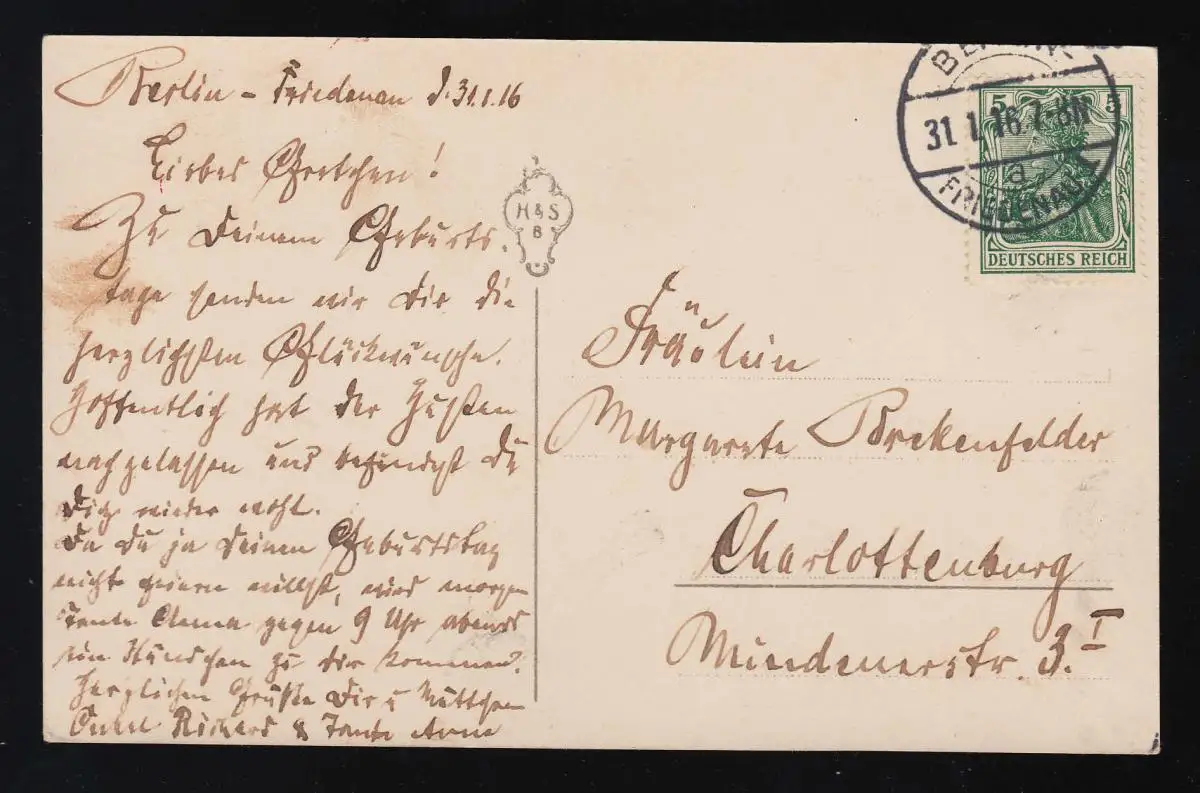 Berlin - Friedenau d. 31.1.16
Liebes Gretchen!
Zu Deinem Geburts-
tage senden wir Dir die
herzlichsten Glückwünsche.
Hoffentlich hat der Husten
nachgelassen und befindest Du
Dich wieder wohl.
Da Du ja Deinen Geburtstag
nicht feiern willst, wird morgen
Tante gegen 9 Uhr abends
ein Stündchen zu Dir kommen.
Herzlichen Gruß Dir u Muttchen
Onkel Richard & Tante Anna
H & S
B
BERLIN
31.1.16.7-8N
a
FRIEDENAU 1
5 5
DEUTSCHES REICH
Fräulein
Margarete Brekenfelder
Charlottenburg
Mindenerstr. 3. I